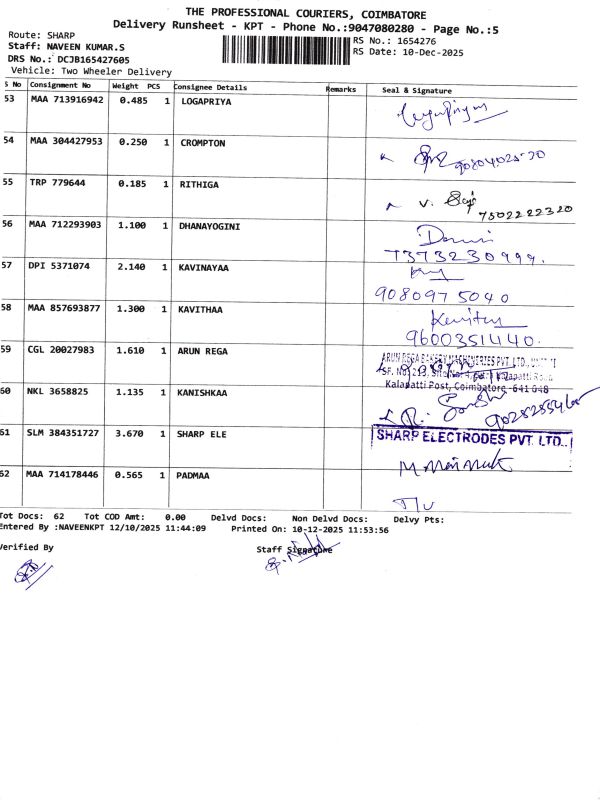 THE PROFESSIONAL COURIERS, COIMBATORE
Delivery Runsheet - KPT - Phone No.:9047080280 - Page No.:5
Route: SHARP
Staff: NAVEEN KUMAR.S
DRS No.: DCJB165427605
Vehicle: Two Wheeler Delivery
RS No.: 1654276
RS Date: 10-Dec-2025
S No Consignment No Weight PCS Consignee Details Remarks Seal & Signature
53 MAA 713916942 0.485 1 LOGAPRIYA
54 MAA 304427953 0.250 1 CROMPTON
55 TRP 779644 0.185 1 RITHIGA V. 7502222320
56 MAA 712293903 1.100 1 DHANAYOGINI
7373230999.
57 DPI 5371074 2.140 1 KAVINAYAA
9080975040
58 MAA 857693877 1.300 1 KAVITHAA
9600351440.
59 CGL 20027983 1.610 1 ARUN REGA ARUN REGA BAKERY MACHINERIES PVT. LTD.,
Kalapatti Post, Coimbatore - 641 048
60 NKL 3658825 1.135 1 KANISHKAA
61 SLM 384351727 3.670 1 SHARP ELE SHARP ELECTRODES PVT. LTD.,
62 MAA 714178446 0.565 1 PADMAA
Tot Docs: 62 Tot COD Amt: 0.00 Delvd Docs: Non Delvd Docs: Delvy Pts:
Entered By :NAVEENKPT 12/10/2025 11:44:09 Printed On: 10-12-2025 11:53:56
Verified By Staff Signature